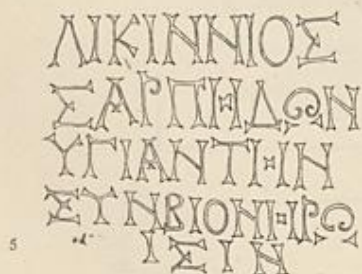 ΛΙΚΙΝΝΙΟΣ
ΣΑΡΠΗΔΩΝ
ΥΓΙΑΝΤΗΝ
ΣΥΝΒΙΟΝΗΡΩ
5 ΙΣΙΝ